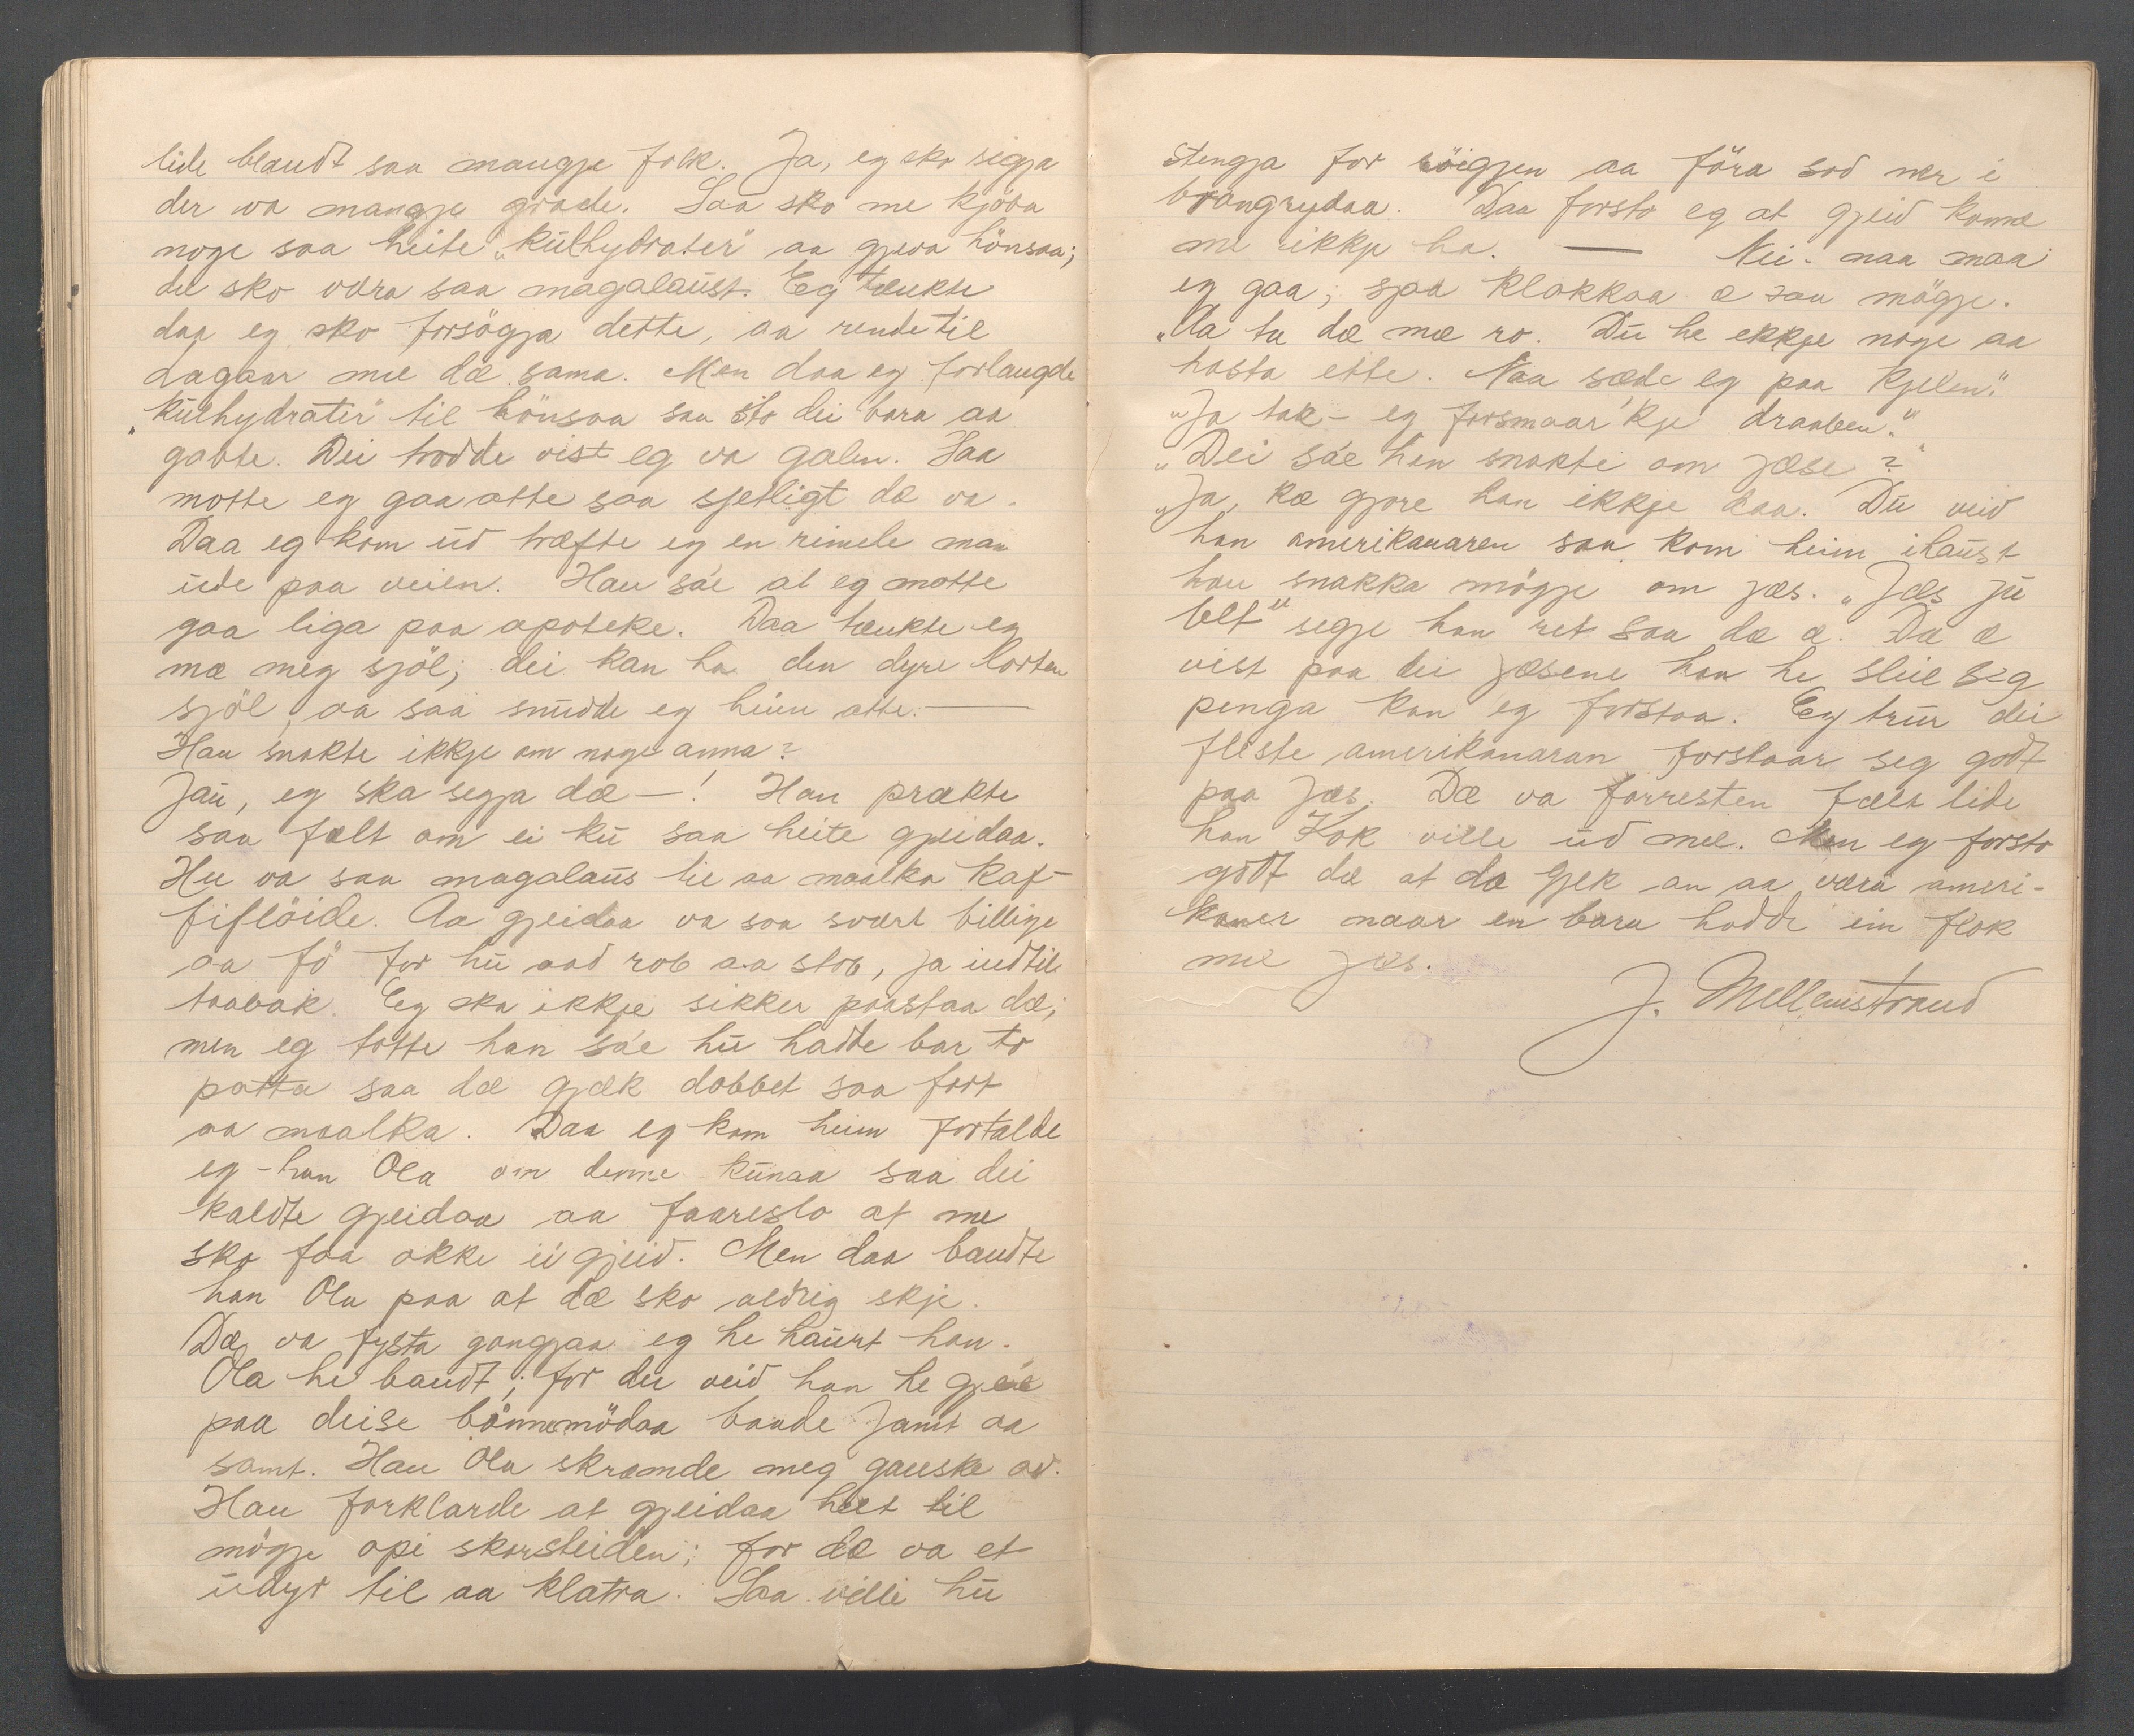 lide blandt saa mangje folk. Ja, eg sko segja
der va mangje graade. Saa sko me kjöba
noge saa heite „kulhydrater" aa gjeva hönsaa;
dei sko vœra saa magalaust. Eg tœnkte
daa eg sko forsögja dette, aa rende til
Aagaar me dœ sama. Men daa eg forlangde
„kulhydrater" til hönsaa saa sto dei bara aa
gabte. Dei trodde vist eg va galen. Saa
motte eg gaa atte saa sjetligt dœ va.
Daa eg kom ud trœfte eg en rimele man
ude paa veien. Han sáe at eg motte
gaa liga paa apoteke. Daa tœnkte eg
mœ meg sjöl; dei kan ha den dyre lorten
sjöl, aa saa snudde eg heim atte. —
Han snakte ikkje om noge anna?
Jau, eg ska segja dœ —! Han prœkte
saa fœlt om ei ku saa heite gjeidaa.
Hu va saa magalaus te aa maalka kaf-
fiflöide. Aa gjeidaa va saa svœrt billige
aa fö for hu aad rob aa stob, ja indtil
taabak. Eg ska ikkje sikker paastaa dœ;
men eg totte han sáe hu hadde bar to
patta saa dœ gjœk dobbel saa fort
aa maalka. Daa eg kom heim fortalde
eg han Ola om denne kunaa saa dei
kaldte gjeidaa aa faareslo at me
sko faa okke ei gjeid. Men daa bandte
han Ola paa at dœ sko aldrig skje.
Dœ va fysta gongjaa eg he haurt han
Ola he bandt; for du veid han he gjeie
paa deise bönnemödaa baade jamt aa
samt. Han Ola skrœmde meg ganske av.
Han forklarde at gjeidaa helt til
mögje opi skorsteiden; for dœ va et
udyr til aa klatra. Saa ville hu
stengja for röigjen aa föra sod ner i
brangrydaa. Daa forsto eg at gjeid konne
me ikkje ha. — Nei - naa maa
eg gaa; sjaa klokkaa œ saa mögje.
„Aa ta dœ mœ ro. Du he ekkje noge aa
hasta ette. Naa sœde eg paa kjelen."
„Ja tak - eg forsmaar'kje draaben."
„Dei sáe han snakte om jœse?"
„Ja, kœ gjore han ikkje daa. Du veid
han amerikanaren saa kom heim ihaust
han snakka mögje om jœs. „Jœs ju
belt" segje han ret saa dœ œ. Dœ œ
vist paa dei jœsene han he sleie seg
penga kan eg forstaa. Eg trur dei
fleste amerikanaran forstaar seg godt
paa jœs. Dœ va forresten fœlt lide
han Kok ville ud me. Men eg forsto
godt dœ at da gjek an aa vœra ameri-
kaner naar en bara hadde ein flok
me jœs.
J. Mellemstrand